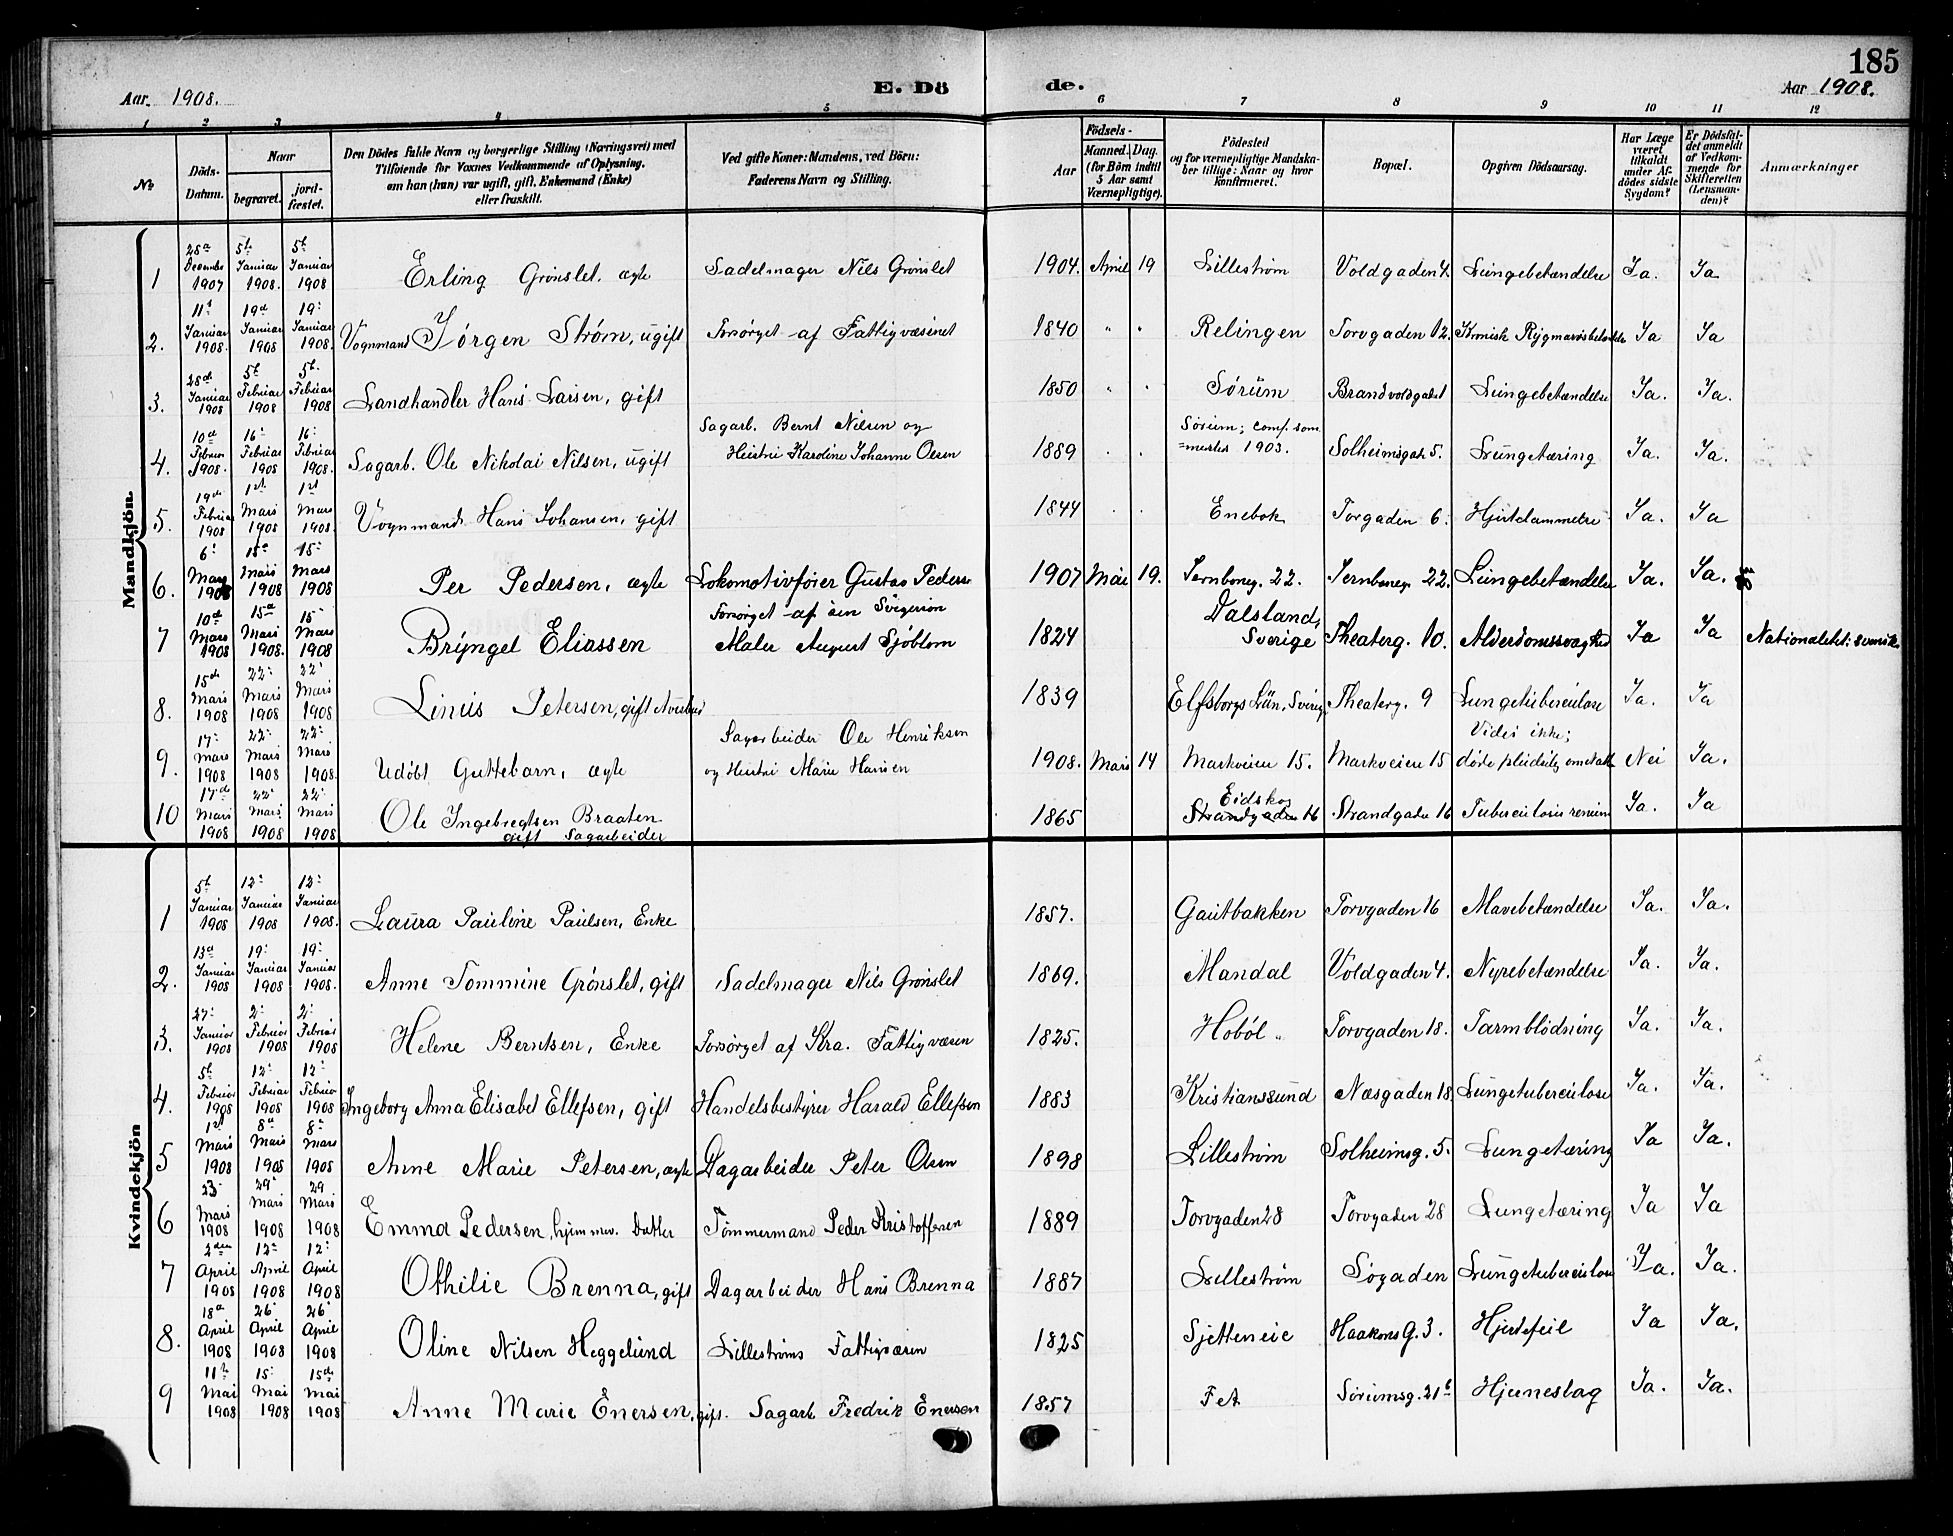 185
Aar. 1908.
E. Dö
de.
Aar 1908.
1 2 3 4 5 6 7 8 9 10 11 12
No
Döds-Datum.
Naar
begravet.
jord-fæstet.
Den Dödes fulde Navn og borgerlige Stilling (Næringsvei) med
Tilføiende for Voxnes Vedkommende af Oplysning,
om han (hun) var ugift, gift, Enkemand (Enke)
eller fraskilt.
Ved gifte Koner: Mandens, ved Börn:
Faderens Navn og Stilling.
Födsels-
Aar
Maaned. Dag.
(for Börn indtil
5 Aar samt
Værnepligtige).
Födested
og for værnepligtige Mandska-
ber tillige: Naar og hvor
konfirmeret.
Bopæl.
Opgiven Dödsaarsag.
Har Læge
været
tilkaldt
under Af-
dödes sidste
Sygdom?
Er Dödsfal-
det anmeldt
af Vedkom-
mende for
Skifteretten
(Lensman-
den)?
Anmærkninger
Mandkjön.
1 28de December 1907 5te Januar 1908. 5te Januar 1908 Erling Grönslet. ægte Sadelmager Nils Grönslet 1904. April 19 Lilleström Voldgaden 4. Lungebetændelse Ja. Ja
2. 11te Januar 1908. 19de Januar 1908 19: Januar 1908. Vognmand Jörgen Ström, ugift Forsörget af Fattigvæsenet 1840 " " Relingen Torvgaden 12. Kronisk Rygmarvsbetændelse Ja Ja
3. 28de Januar 1908 5te Februar 1908 5te Februar 1908 Landhandler Hans Larsen, gift 1850 " " Sörum Brandvoldgadet Lungebetændelse Ja. Ja.
4. 10de Februar 1908. 16: Februar 1908 16: Februar 1908. Sagarb. Ole Nikolai Nilsen, ugift Sagarb. Bernt Nilsen og
Hustru Karoline Johanne Olsen 1889 . . Sörum; conf. som-
mested 1903. Solheimsgade 5. Lungetæring Ja. Ja.
5. 19de Februar 1908 1st Mars 1908 1st Mars 1908. Vognmand Hans Johansen, gift 1844 . . Enebak Torgaden 6. Hjertelammelse Ja. Ja
6. 6: Mars 1908 15de Mars 1908 15: Mars 1908 Per Pedersen, ægte Lokomotivföier Gustav Peders 1907 Mai 19. Jernbaneg. 22. Jernbaneg. 22. Lungebetændelse Ja. Ja.
7 10de Mars 1908 15de Mars 1908. 15 Mars 1908 Bryngel Eliassen Forsörget af sin Svigersön
Maler August Sjöblom 1824 Dalsland,
Sverige Theaterg. 10. Alderdomssvaghed Ja Ja Nationalitet: svensk.
8. 15de Mars 1908 22: Mars 1908 22: Mars 1908 Linus Petersen, gift 1839 Elfsborgs Län, Sverige Theaterg. 9 Lungetuberculose Ja. Ja
9. 17: Mars 1908 22: Mars 1908 22: Mars 1908. Udöbt Guttebarn, ægte Sagarbeider Ole Henriksen
og Hustru Marie Hansen 1908. Mars 14 Markveien 15. Markveien 15 Vides ikke;
döde pludselig Nei Ja.
10 17de Mars 1908 22: Mars 1908 22: Mars 1908 Ole Ingebregtsen Braaten
gift Sagarbeider 1865 Eidskog
Strandgaden 16 Strandgaden 16 Tuberculosis renum Ja. Ja
Kvindekjön
1 5te Januar 1908 12: Januar 1908 12: Januar 1908. Laura Pauline Paulsen, Enke 1857. Gautbakken Torvgaden 16 Mavebetændelse Ja. Ja.
2. 13de Januar 1908 19: Januar 1908 19: Januar 1908. Anne Tommine Grönslet, gift Sadelmager Nils Grönslet 1869. Mandal Voldgaden 4. Nyrebetændelse Ja. Ja.
3. 27: Januar 1908 2: Februar 1908 2: Februar 1908 Helene Berntsen, Enke Forsörget af Kra. Fattigvæsen 1825. Hoböl Torvgaden 18. Tarmblödning Ja. Ja.
4. 5te Februar 1908 12: Februar 1908 12: Februar 1908 Ingeborg Anna Elisabet Ellefsen, gift Handelsbestyrer Harald Ellefsen 1883 Kristianssund Næsgaden 18 Lungetuberculose Ja. Ja.
5 1st Mars 1908 8de Mars 1908 8: Mars 1908 Anne Marie Petersen, ægte Dagarbeider Peter Olsen 1898 Lilleström Solheimsg. 5. Lungetæring Ja Ja.
6 23 Mars 1908 29 Mars 1908 29 Mars 1908 Emma Pedersen, hjemmev. Datter Tömmermand Peder Kristoffersen 1889 Torvgaden 28 Torvgaden 28 Lungetæring Ja Ja
7 2den April 1908 12: April 1908 12: April 1908 Othilie Brenna, gift Dagarbeider Hans Brenna 1887 Lilleström Søgaden Lungetuberculose Ja. Ja.
8. 18de April 1908 26 April 1908 26 April 1908 Oline Nilsen Heggelund Lilleströms Fattigvæsen 1825 Haakons G. 3. Hjertefeil Ja Ja.
9 11te Mai 1908 15: Mai 1908 15de Mai 1908 Anne Marie Enersen, gift. Sagarb. Fredrik Enersen 1857 Fet Sörumsg. 21b Hjerneslag Ja. Ja.